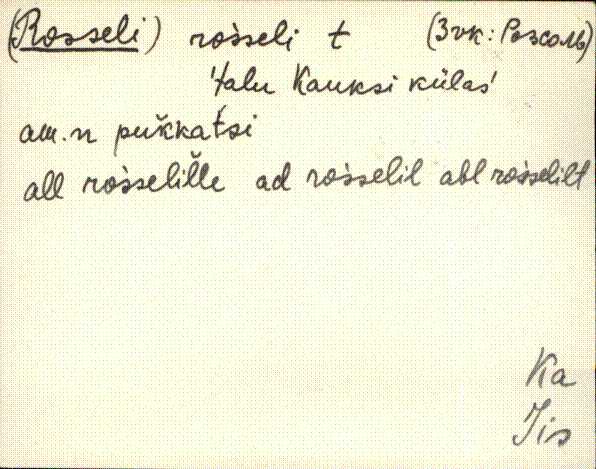 (Rosseli) ros̀seli t (Зvк: Розсоль)
'talu Kauksi külas'
am. n puk̆kat́si
all ros̀selil̆le ad ros̀selil abl ros̀selilt
Ka
Iis